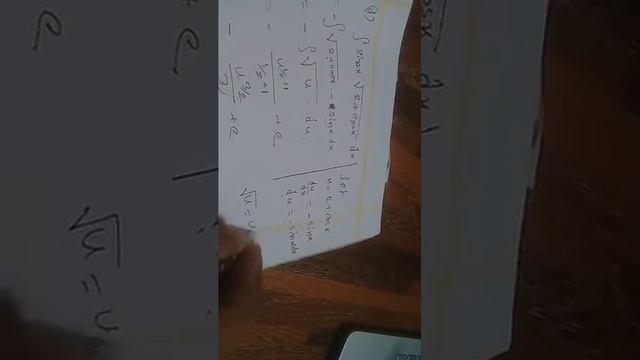 d) ∫ sinx √2+cosx dx
= -∫ √2+cosx · -sinx dx
= - ∫ √u · du
= - u^(1/2+1) / (1/2+1) + c
- u^(3/2) / (3/ + c
let
u = 2+cosx
du/dx = -sinx
du = -sinx dx
√u = u